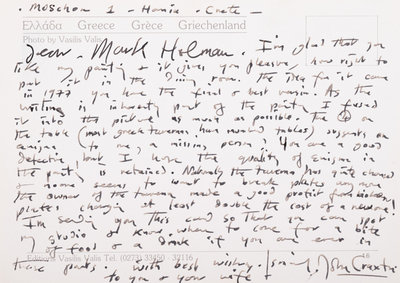 . Moschon 1 - Hania - Crete -
Ελλάδα Greece Grèce Griechenland
Photo by Vasilis Valis
Dear Mark Holman. I'm glad that you
like my painting & it gives you pleasure, how right to
put it in the dining room. The idea for it came
in 1977 you have the final & best version. As the
writing is inherently part of the painting I fused
it into the picture as much as possible. The on
the table (most greek tavernas have numbered tables) suggests an
enigma (to me, a missing person) you are a good
detective, but I hope the quality of enigma in
the painting is retained. Nowadays the taverna has quite changed
& no one seems to want to break plates any more
the owner of the taverna made a good profit from broken
plates charging at least double the cost of a new one!
I'm sending you this card so that you can spot
my studio & know where to come for a bite
of food or a drink if you are ever in
Edition Vasilis Valis Tel. (0273) 33450 - 32116
these parts. with best wishes
to you & your wife John Craxton